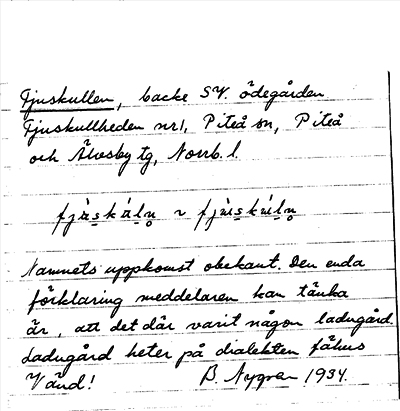 Fjuskullen, backe SV. ödegården
Fjuskullheden nr 1, Piteå sn, Piteå
och Älvsby tg, Norrb. l.
Namnets uppkomst obekant. Den enda
förklaring meddelaren kan tänka
är, att det där varit någon ladugård.
Ladugård heter på dialekten fähus
Vänd! B. Nygren 1934.